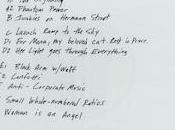 A2 Phantom Power
B Junkies on Hermann Street
C Launch Ramp to the Sky
D1 For Mona, my beloved cat. Rest in Peace.
D2 Her Light goes through Everything
E1 Black Arm w/Wolf
E2 Confetti
F1 Anti-Corporate Music
Small Whole-Numbered Ratios
Woman is an Angel